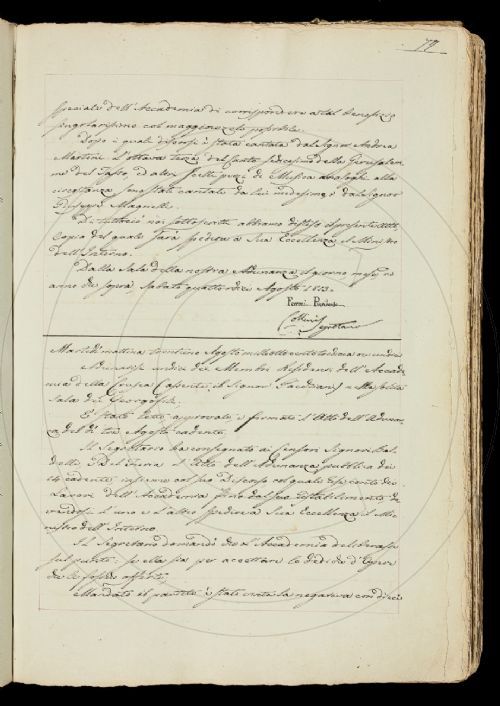 77
speciale dell'Accademia di corrispondere a tal benefizio
singolarissimo col maggiore zelo possibile.
Dopo i quali discorsi è stata cantata dal Signor Andrea
Martini l'ottava terza del Canto sedicesimo della Gerusalem-
me del Tasso, ed altri scelti pezzi di Musica analoghi alla
circostanza sono stati cantati da lui medesimo, e dal Signor
Giuseppe Magnelli.
Di tuttociò noi sottoscritti abbiamo disteso il presente Atto,
Copia del quale sarà spedita a Sua Eccellenza il Ministro
dell'Interno.
Dalla Sala della nostra Adunanza il giorno mese, ed
anno di sopra, Sabato quattordici Agosto 1813.
Collini Segretario
Martedì mattina trentuno Agosto mille ottocento tredici a ore undici
Adunatisi undici dei Membri Residenti dell'Accade-
mia della Crusca (assente il Signor
Sala dei Georgofili.
È stato letto, approvato, e firmato l'Atto dell'Adunan-
za del dì tre Agosto cadente.
Il Segretario ha consegnato ai Censori Signori Bal-
delli, e Del Furia l'Atto dell'Adunanza pubblica dei
14 cadente, insieme col suo Discorso col quale espone tutti i
Lavori dell'Accademia fino dal suo ristabilimento, do-
vendosi l'uno e l'altro spedire a Sua Eccellenza il Mi-
nistro dell'Interno.
Il Segretario domandò che l'Accademia deliberasse
sul punto: se ella sia per accettare le dediche d'Opere
che le fossero offerte.
Mandato il partito è stata vinta la negativa con dieci